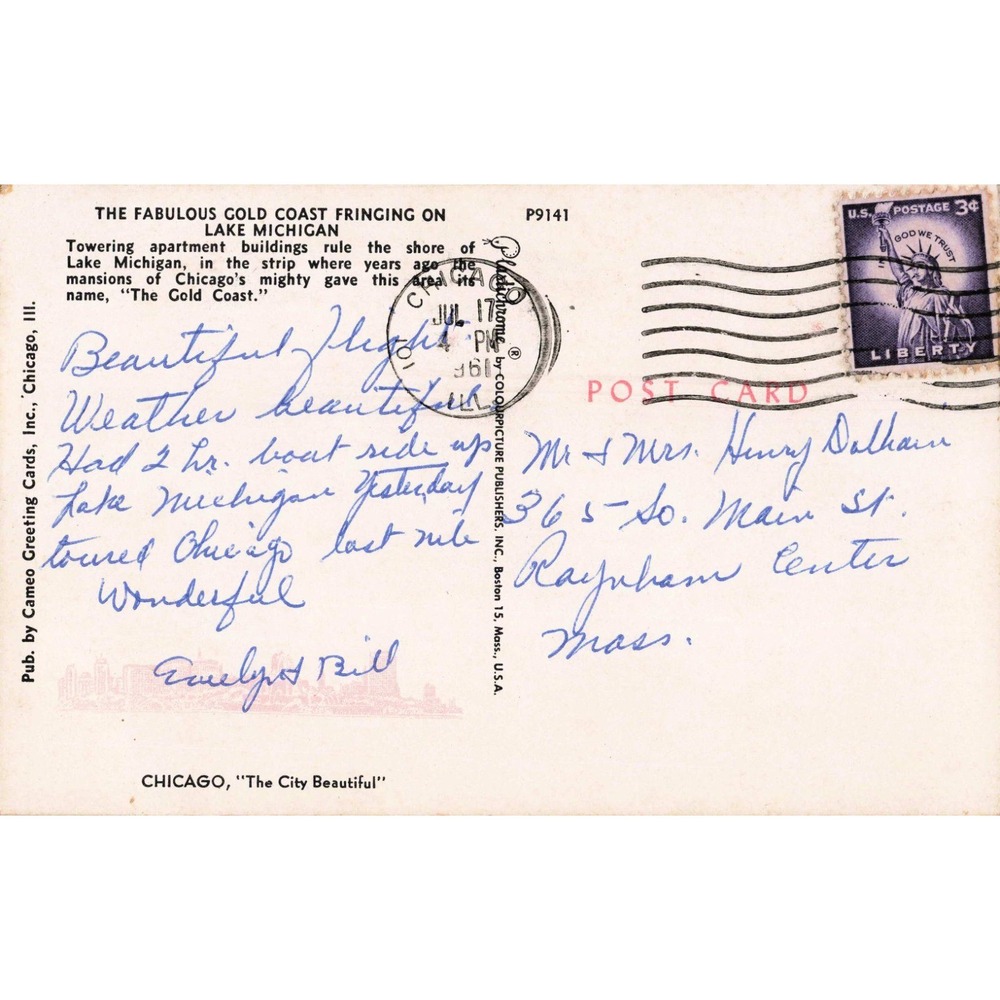 THE FABULOUS GOLD COAST FRINGING ON
LAKE MICHIGAN
Towering apartment buildings rule the shore of
Lake Michigan, in the strip where years ago the
mansions of Chicago's mighty gave this area its
name, "The Gold Coast."
P9141
Pub. by Cameo Greeting Cards, Inc., Chicago, Ill.
Plastichrome ® by COLOURPICTURE PUBLISHERS, INC., Boston 15, Mass., U.S.A.
CHICAGO
JUL 17
4 PM
1961
ILL
U.S. POSTAGE 3¢
IN GOD WE TRUST
LIBERTY
POST CARD
Beautiful flight
Weather beautiful
Had 2 hr. boat ride up
Lake Michigan Yesterday
toured Chicago last nite
Wonderful
Evelyn & Bill
Mr & Mrs. Henry Dolham
365 So. Main St.
Raynham Center
Mass.
CHICAGO, "The City Beautiful"